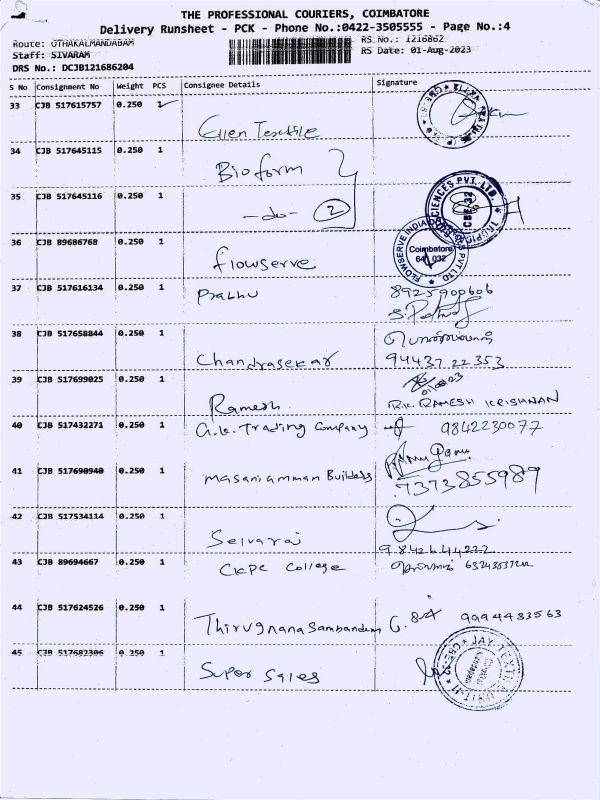 THE PROFESSIONAL COURIERS, COIMBATORE
Delivery Runsheet - PCK - Phone No.:0422-3505555 - Page No.:4
Route: OTHAKALMANDABAM
RS No.: 1216862
Staff: SIVARAM
RS Date: 01-Aug-2023
DRS No.: DCJB121686204
S No Consignment No Weight PCS Consignee Details Signature
33 CJB 517615757 0.250
Ellen Textile
34 CJB 517645115 0.250 1
Bioform
35 CJB 517645116 0.250 1
-do- 2
36 CJB 89686768 0.250 1
flowserve
FLOWSERVE INDIA
Coimbatore
641 032
37 CJB 517616134 0.250 1 Prabhu 8925900606
38 CJB 517658844 0.250 1
Chandrasekar 94437 22 353
39 CJB 517699025 0.250 1
Ramesh R.K. RAMESH KRISHNAN
40 CJB 517432271 0.250 1 a.k. Trading Company 9842230077
41 CJB 517690940 0.250 1
Masaniamman Builders 7373855989
42 CJB 517534114 0.250 1
Selvaraj 9842644222
43 CJB 89694667 0.250 1 CKPC College
44 CJB 517624526 0.250 1
Thirugnanasambandam 9994483563
45 CJB 517682306 0.250 1
Super Sales